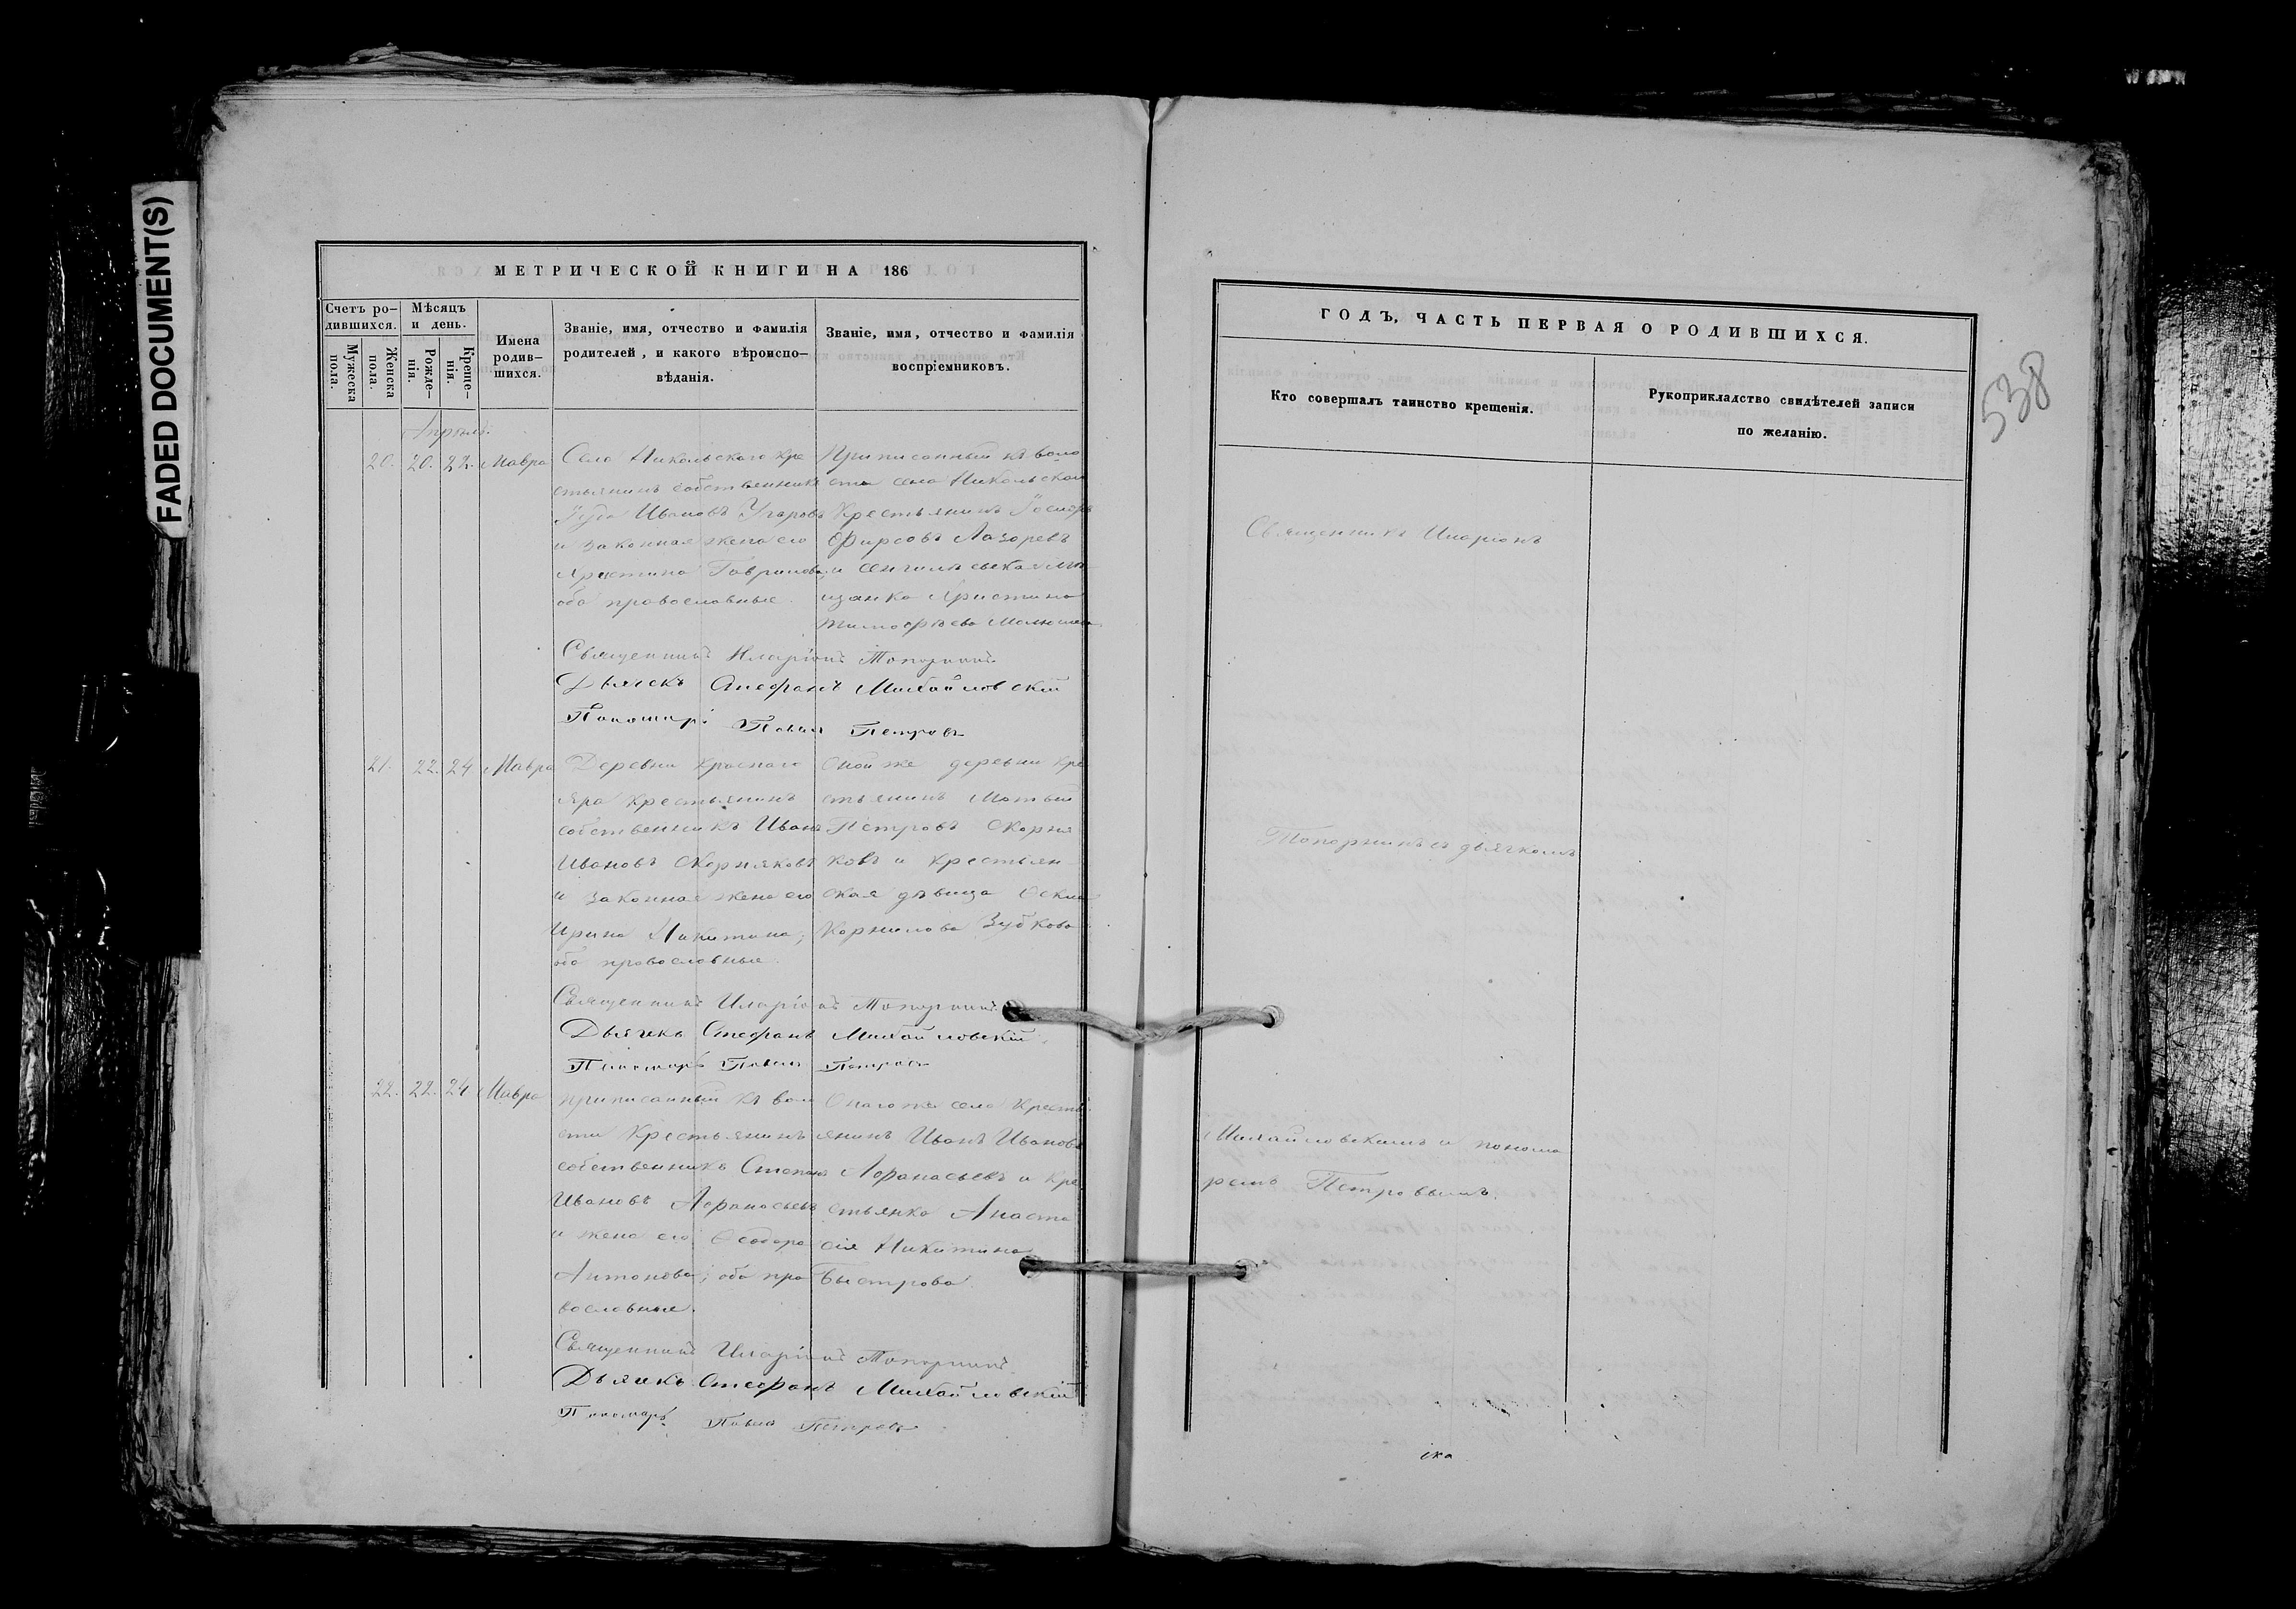 FADED DOCUMENT(S)
МЕТРИЧЕСКОЙ КНИГИ НА 186
Счетъ ро-
дившихся.
Мужеска
пола.
Женска
пола.
Мѣсяцъ
и день.
Рожде-
нія.
Креще-
нія.
Имена
родив-
шихся.
Званіе, имя, отчество и фамилія
родителей, и какого вѣроиспо-
вѣданія.
Званіе, имя, отчество и фамилія
воспріемниковъ.
Апрѣль.
20. 20. 22. Мавра
Села Никольскаго кре
стьянинъ собственникъ
Ивановъ Угаровъ
и законная жена его
Христина Гаврилова,
оба православные.
Приписанный къ воло
сти села Никольскаго
Крестьянинъ
Фирсовъ Лазаревъ
и мѣ
щанка Христина
Тимофѣева
Священникъ Иларіонъ Топорнинъ
Дьячекъ Стефанъ Михайловскій
Пономарь Павелъ Петровъ
21. 22. 24. Мавра
Деревни Краснаго
яра крестьянинъ
собственникъ Иванъ
Ивановъ Скорняковъ
и законная жена его
Ирина Никитина,
оба православные.
Оной же деревни кре
стьянинъ Матвѣй
Петровъ Скорня
ковъ и крестьян
ская дѣвица
Корнилова Зубкова
Священникъ Иларіонъ Топорнинъ
Дьячекъ Стефанъ Михайловскій
Пономарь Павелъ Петровъ
22. 22. 24 Мавра
приписанный къ воло
сти Крестьянинъ
собственникъ Степанъ
Ивановъ Афанасьевъ
и жена его Ѳеодора
Антонова, оба пра
вославные.
Онаго же села Кресть
янинъ Иванъ Ивановъ
Афанасьевъ и кре
стьянка Анаста
сія Никитина
Быстрова
Священникъ Иларіонъ Топорнинъ
Дьячекъ Стефанъ Михайловскій
Пономарь Павелъ Петровъ
ГОДЪ, ЧАСТЬ ПЕРВАЯ О РОДИВШИХСЯ.
538
Кто совершалъ таинство крещенія.
Рукоприкладство свидѣтелей записи
по желанію.
Священникъ Иларіонъ
Топорнинъ съ дьячкомъ
Михайловскимъ и понома
ремъ Петровымъ.
іка